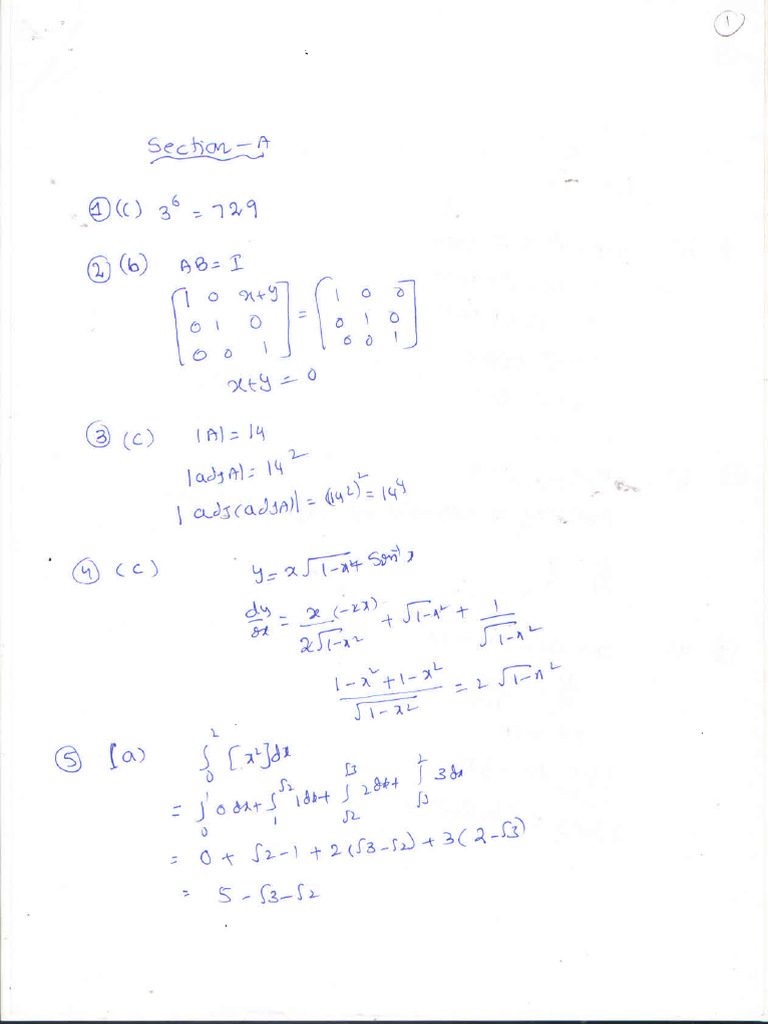 1
Section - A
① (C) 3⁶ = 729
② (b) AB = I
[1 0 x+y] = [1 0 0]
[0 1 0] [0 1 0]
[0 0 1] [0 0 1]
x+y = 0
③ (C) |A| = 14
|adjA| = 14²
|adj(adjA)| = (14²)² = 14⁴
④ (C) y = x√1-x² + Sin⁻¹x
dy/dx = x(-2x)/2√1-x² + √1-x² + 1/√1-x²
1-x²+1-x²/√1-x² = 2√1-x²
⑤ (a) ∫₀² [x²]dx
= ∫₀¹ 0dx + ∫₁^√2 1dx + ∫√2^√3 2dx + ∫√3^2 3dx
= 0 + √2-1 + 2(√3-√2) + 3(2-√3)
= 5-√3-√2